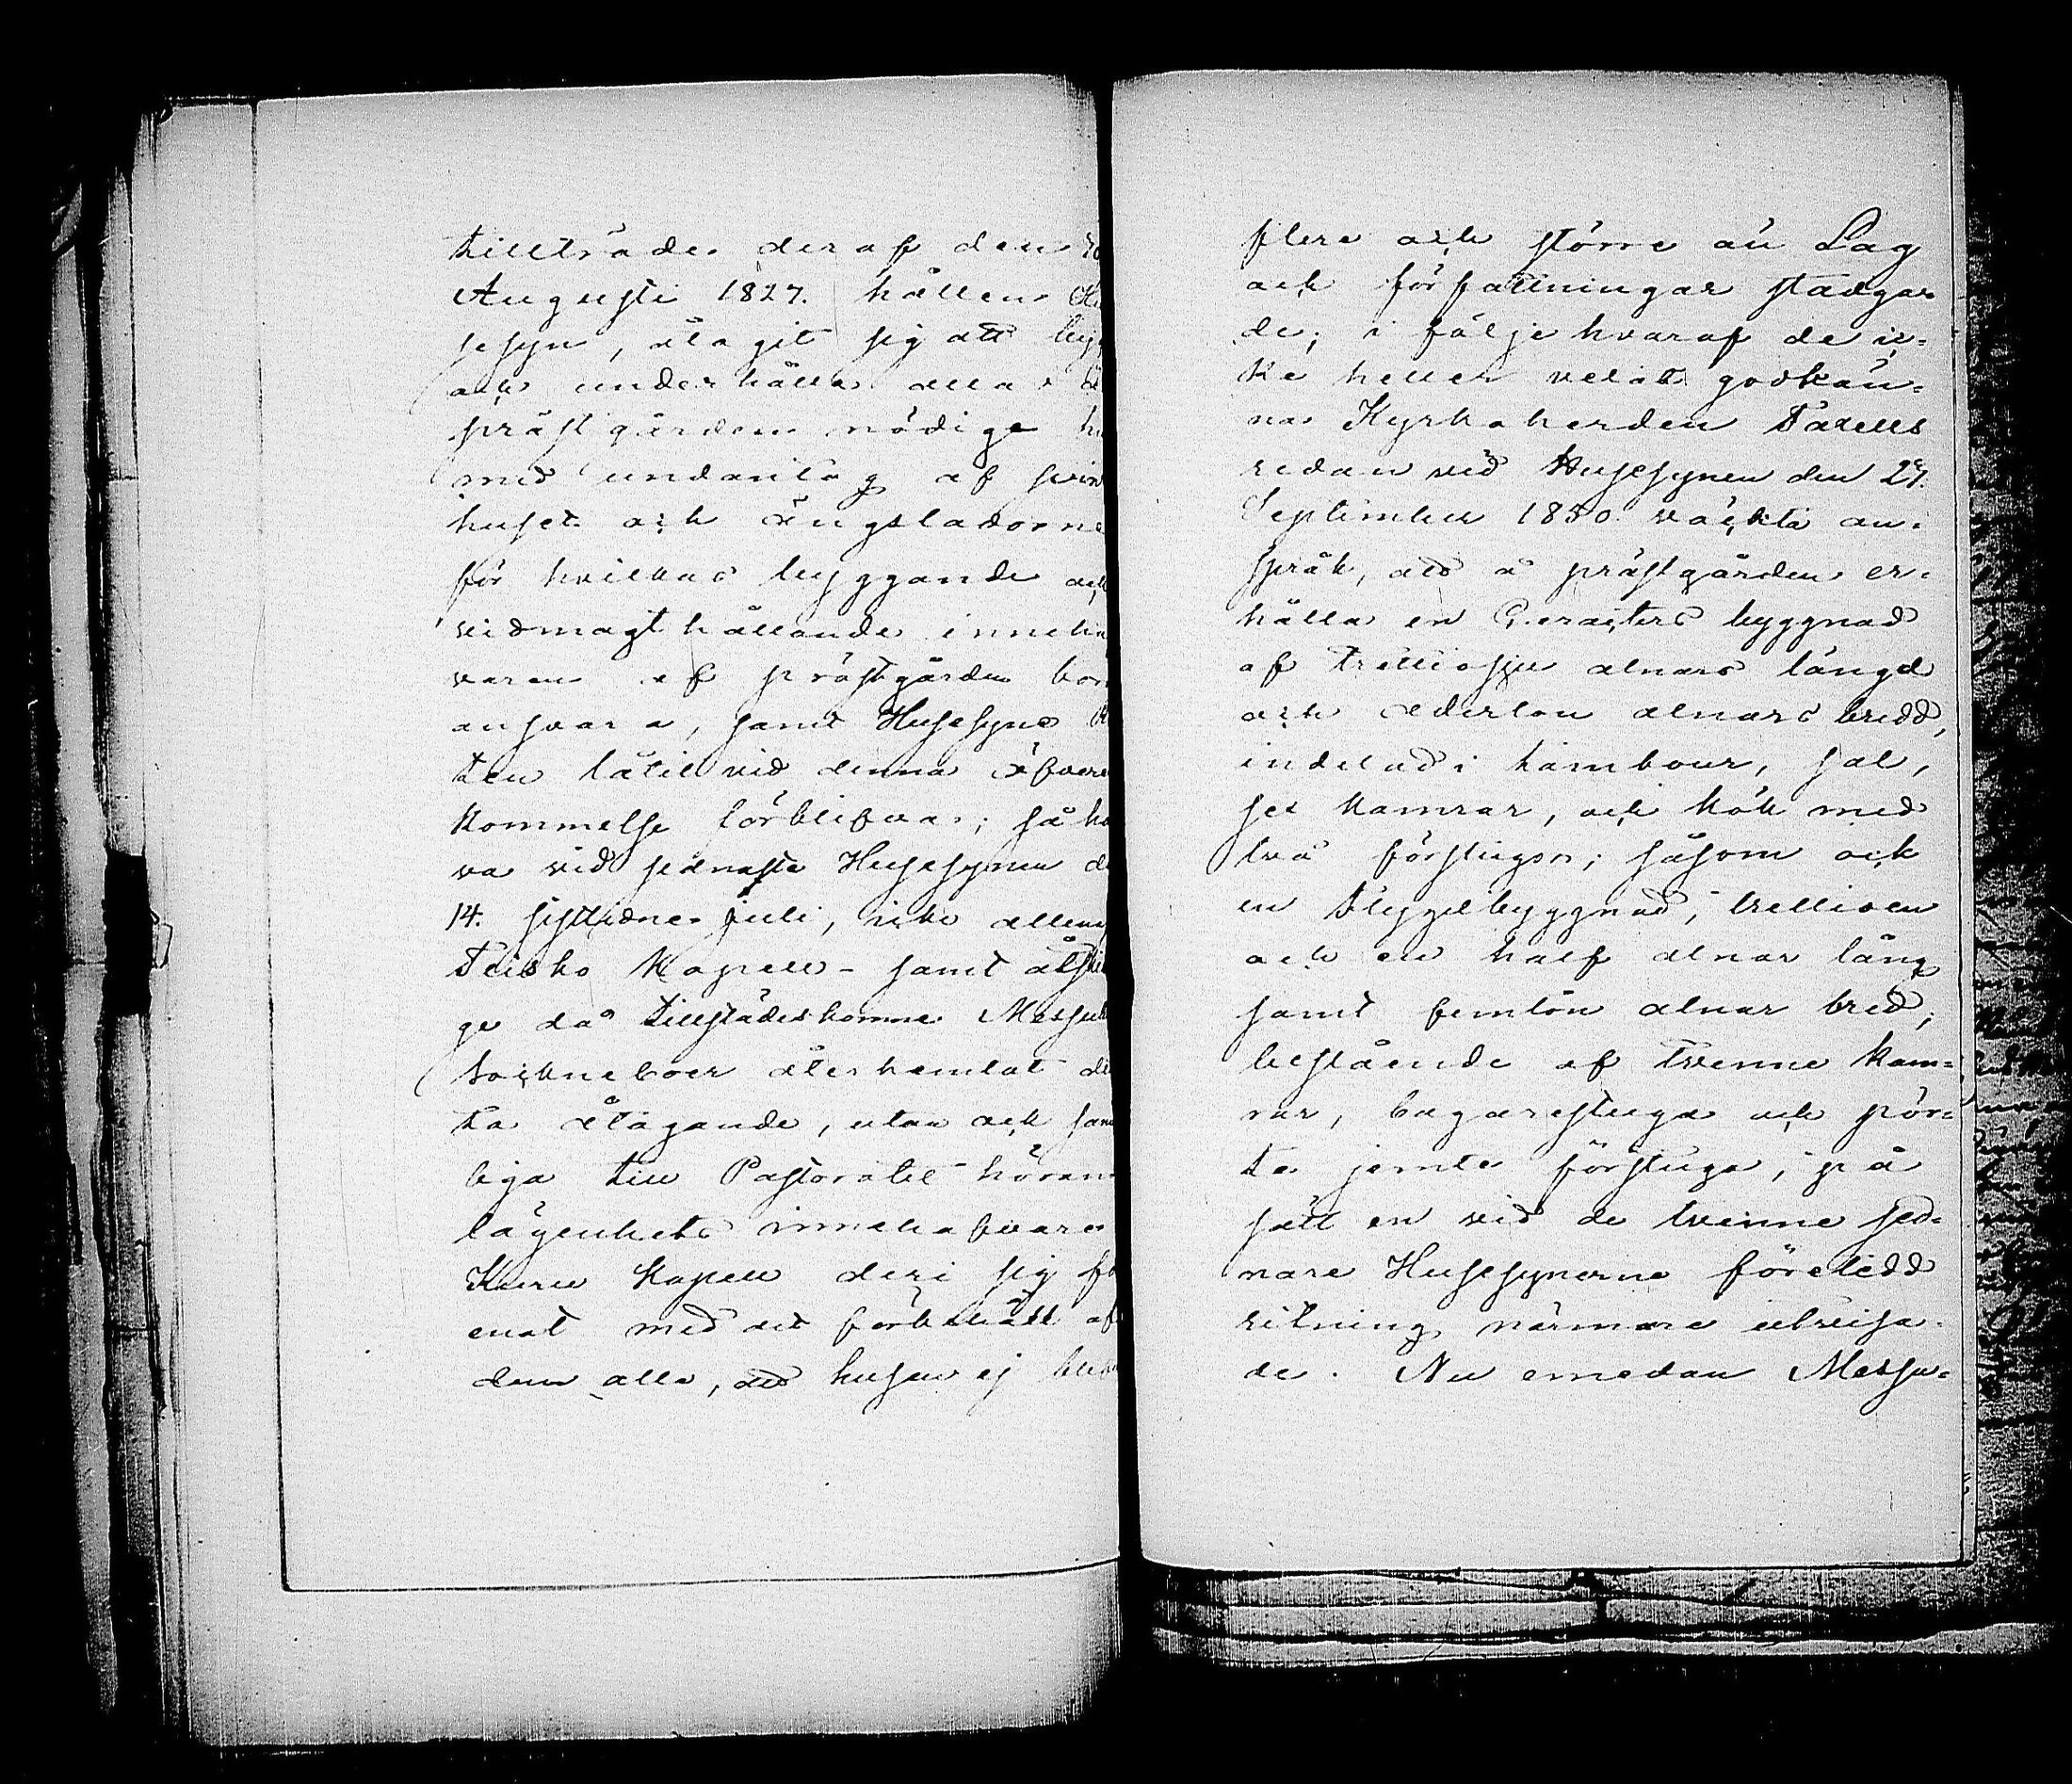 tillträde deraf den
Augusti 1827. hållen
sesyn, åtagit sig att
och underhålla alla å
prästgården nödige
med undantag af
huset och ängsladorne
för hvilkas byggande och
vidmagthållande inneha
varen af prästgården bor
ansvara, samt Husesyns
ten låtit vid denna öfverens
kommelse förblifva; så ha
va vid sednaste Husesynen
14. sistledne juli, icke allenast
Teisko Kapell- samt åtskil
ge då tillstädeskomne Messub
sockneboer återkallat
ta åtagande, utan ock sam
lige till Pastoratet höran
lägenhets innehafvare
Kuru Kapell deri sig
enat med det förbehåll af
dem alla, att husen ej
flere och större än Lag
och författningar stadga
de; i följe hvaraf de ic-
ke heller velat godkän-
na Kyrkoherden Taxells
redan vid Husesynen den 27.
September 1830. väckta an-
språk, att å prästgården er-
hålla en Caracters byggnad
af trettiosju alnars längd
och aderton alnars bredd,
indelad i tambour, sal,
sex kamrar, och kök med
två förstugor; såsom ock
en flygelbyggnad, trettioen
och en half alnar lång
samt femton alnar bred,
bestående af tvenne kam-
rar, bagarestuga och pör-
te jemte förstuga, på
sätt en vid de tvenne sed-
nare Husesynerne företedd
ritning närmare utvisa-
de. Nu emedan Messu-